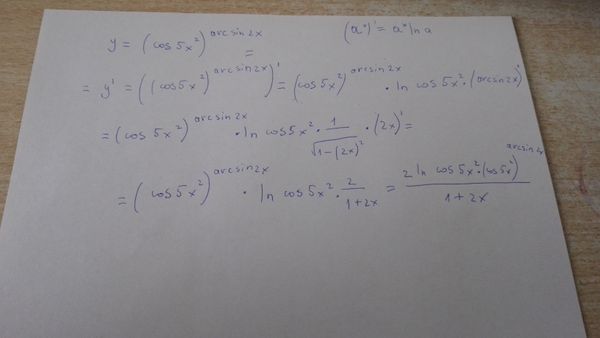 y = (cos 5x²)^(arcsin 2x) = (aˣ)' = aˣ ln a
= y' = ((cos 5x²)^(arcsin 2x))' = (cos 5x²)^(arcsin 2x) · ln cos 5x² · (arcsin 2x)'
= (cos 5x²)^(arcsin 2x) · ln cos 5x² · 1/√(1-(2x)²) · (2x)' =
= (cos 5x²)^(arcsin 2x) · ln cos 5x² · 2/(1+2x) = (2 ln cos 5x² · (cos 5x²)^(arcsin 2x))/(1+2x)